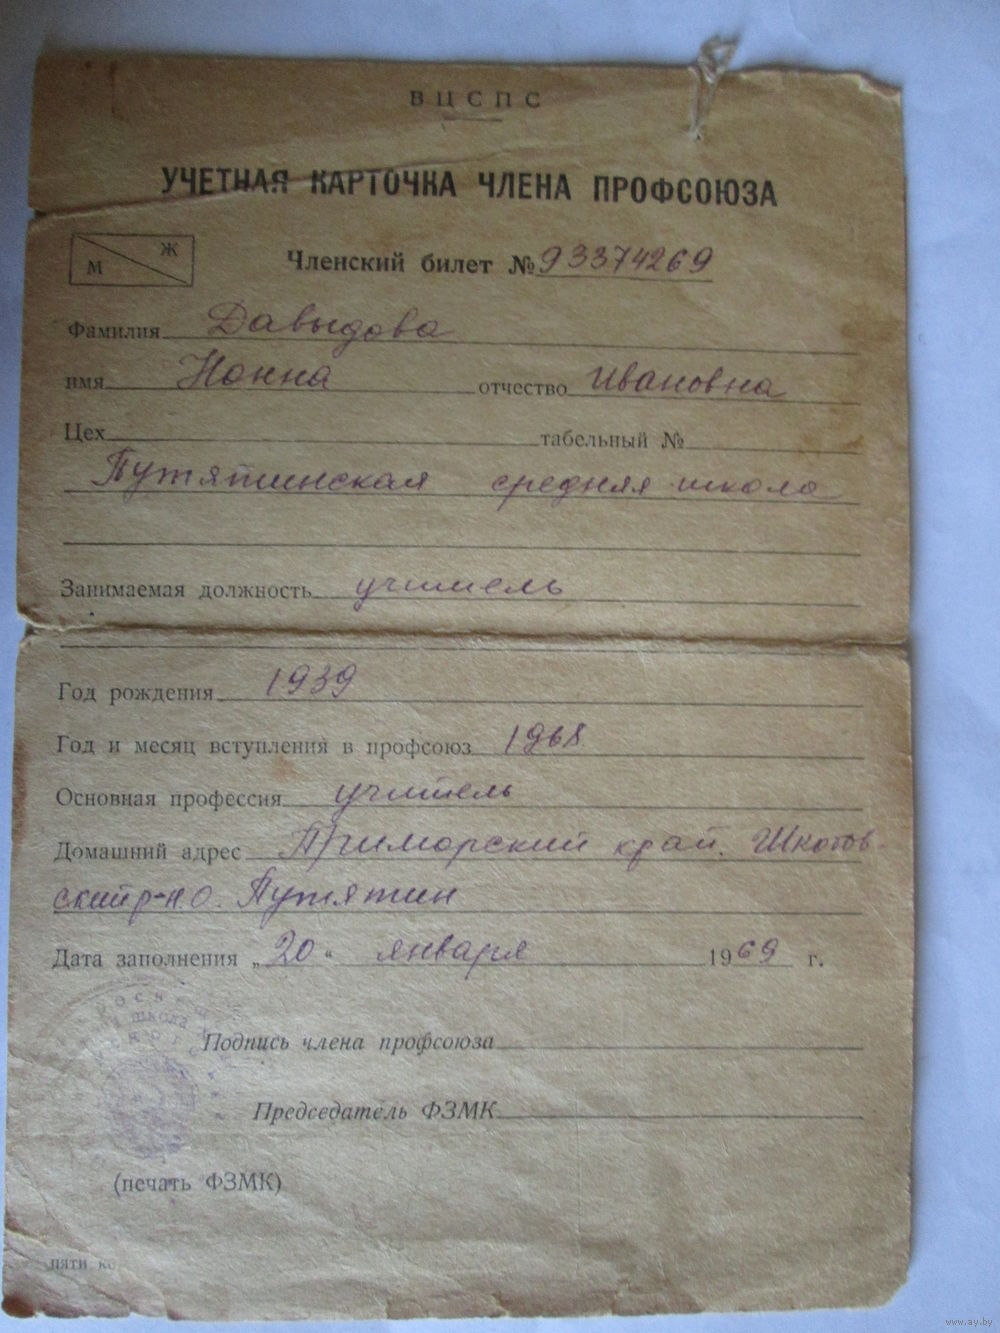 ВЦСПС
УЧЕТНАЯ КАРТОЧКА ЧЛЕНА ПРОФСОЮЗА
М Ж
Членский билет № 93374269
Фамилия Давыдова
имя Нонна отчество Ивановна
Цех табельный №
Путятинская средняя школа
Занимаемая должность учитель
Год рождения 1939
Год и месяц вступления в профсоюз 1968
Основная профессия учитель
Домашний адрес Приморский край. Шкотов-
ский р-н о. Путятин
Дата заполнения „20“ января 1969 г.
школа
Подпись члена профсоюза
Председатель ФЗМК
(печать ФЗМК)
пяти
www.ay.by